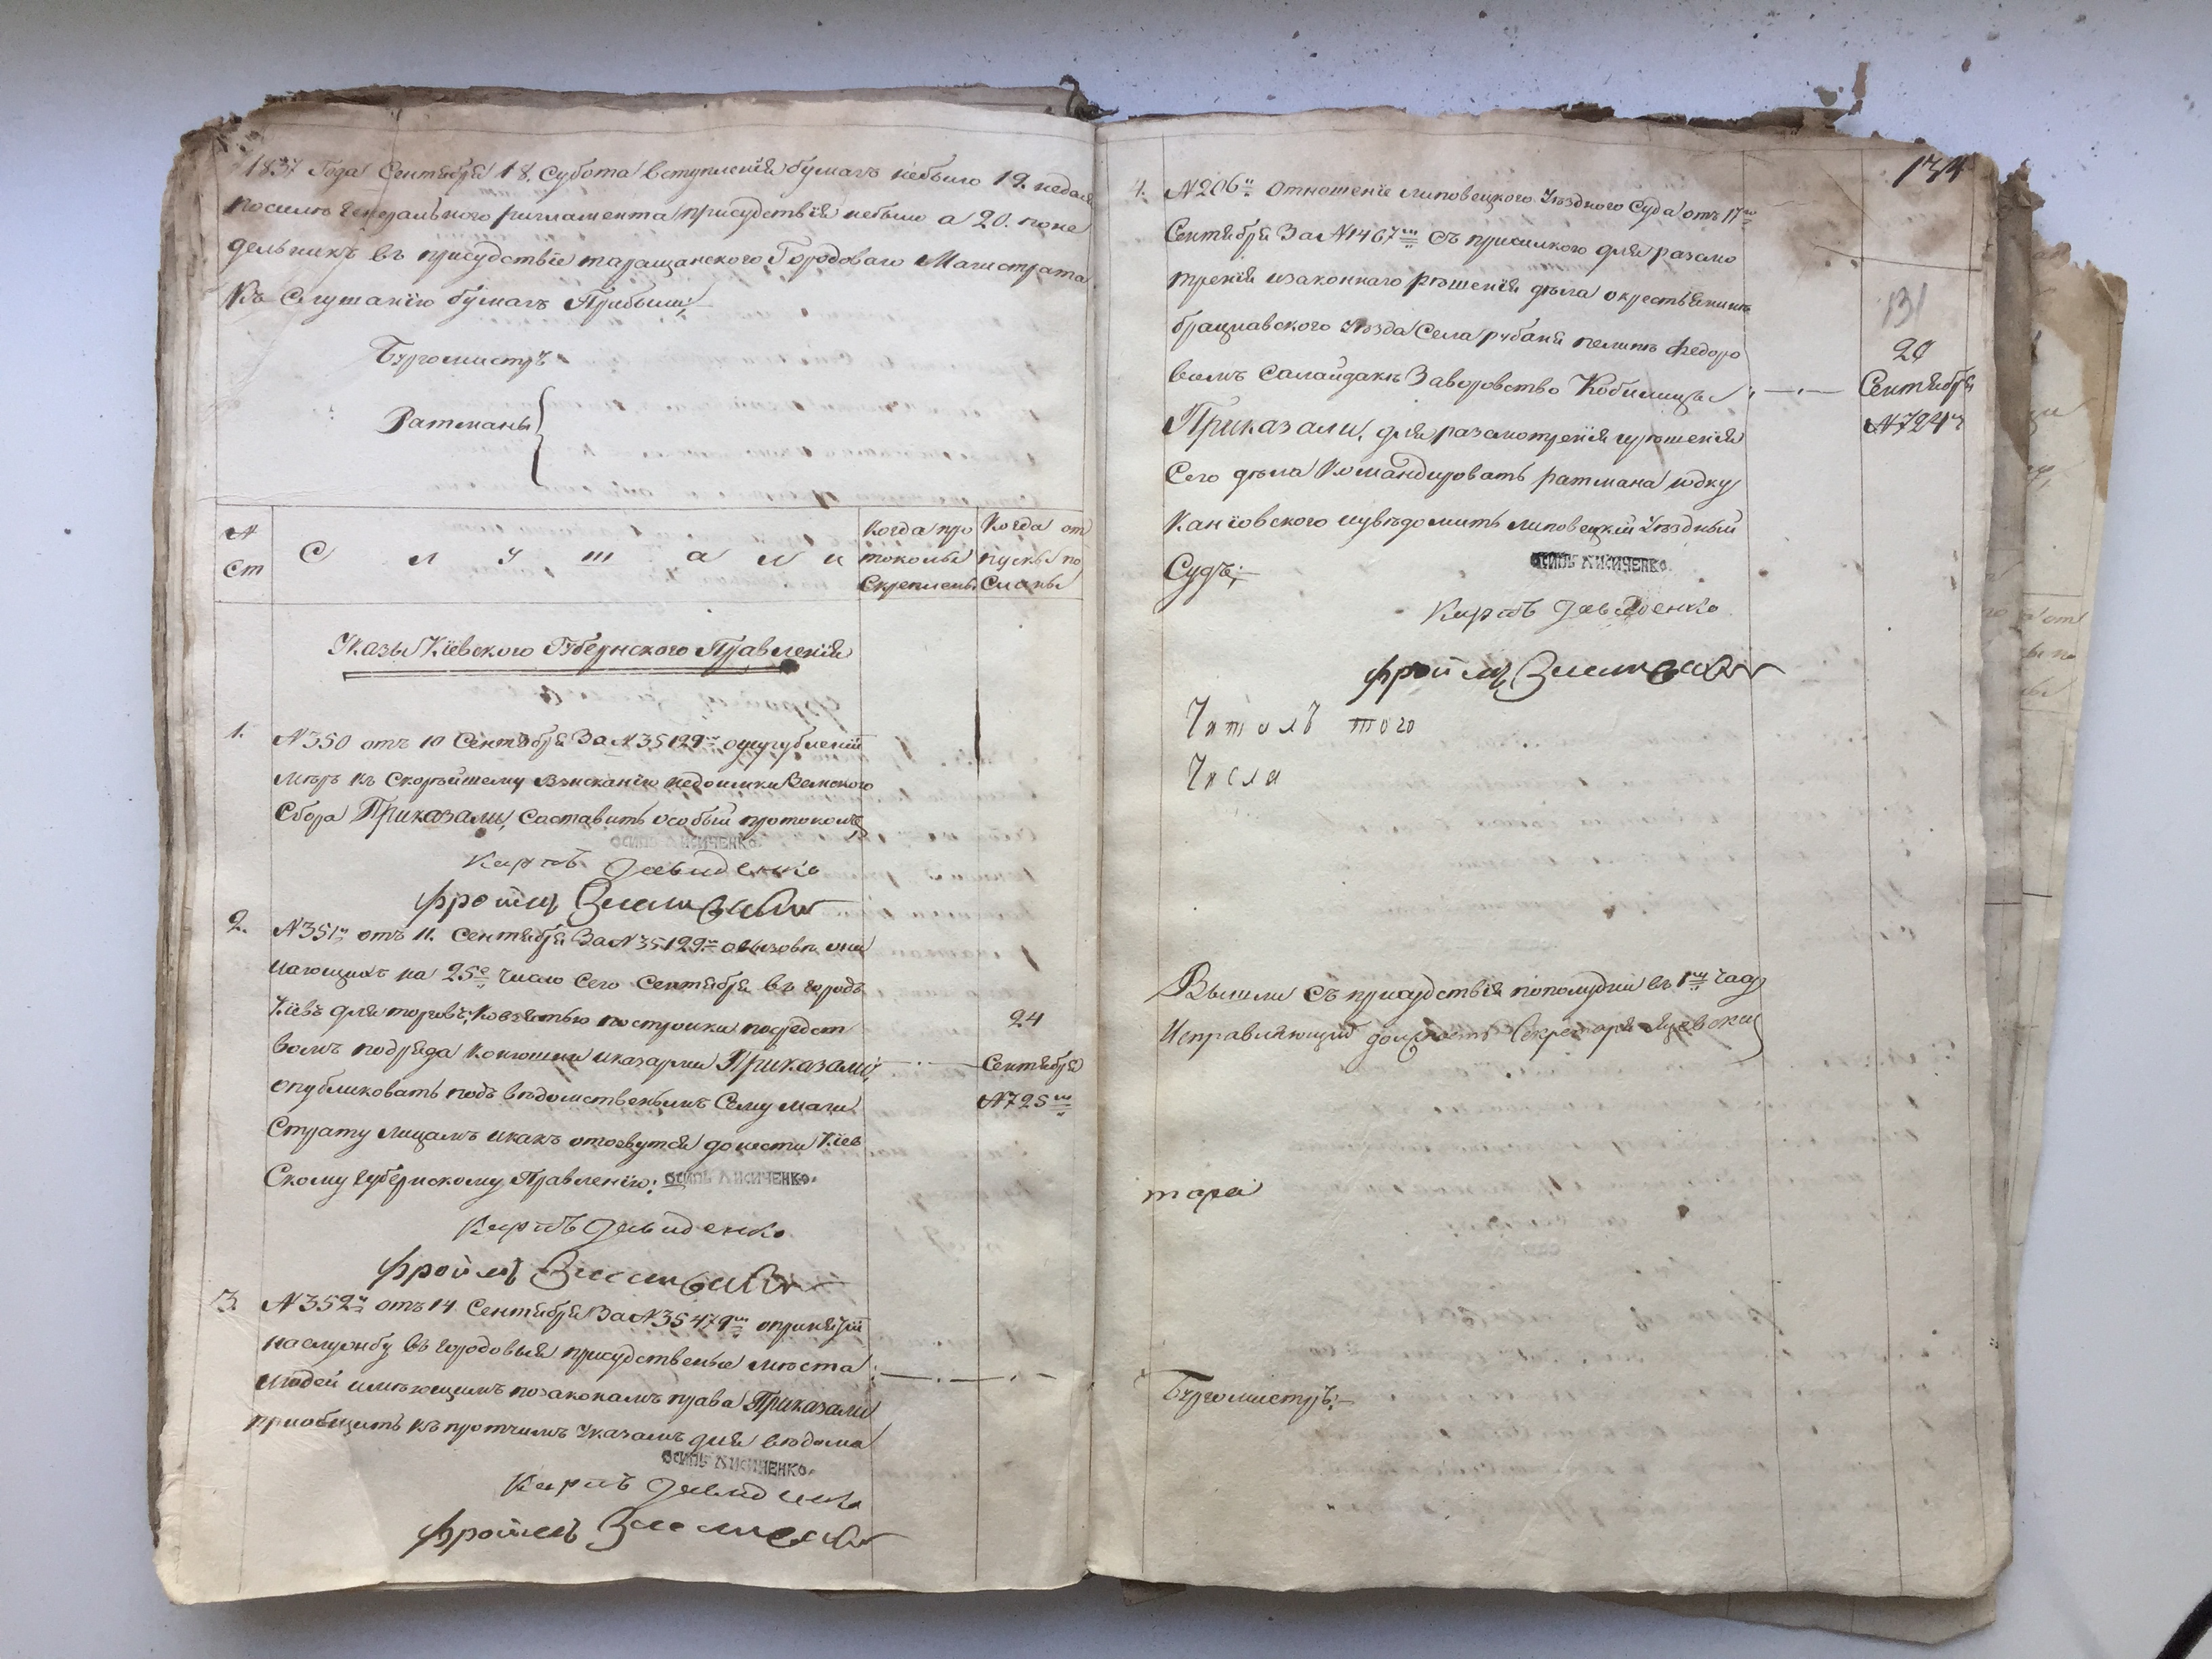 1837 Года Сентября 18. Субота вступления бумагъ небыло 19. недѣля
посилѣ Генеральнаго регламента присудствія небыло а 20. поне
дельникъ въ присудствіе таращанского Городоваго Магистрата
Къ Слушанію бумагъ Прибыли;
Бургомистръ
Ратманы
№ Ст
С л у ш а л и
Когда про токолы Скреплены
Когда от пуски по Сланы
Указы Кіевского Губернского Правленія
1. №350 отъ 10 Сентября За №35129м
мѣръ къ Скорѣйшему взысканію недоимки Земского
Сбора Приказали, Составить особый протоколъ;
ОСИПЪ ЛИСИЧЕНКО.
Карпъ Давиденко
Фроимъ
2. №351й отъ 11. Сентября За №35199м о вызовѣ
на 25е число Сего Сентября въ городъ
Кіевъ для торговъ, постройки посредст
24
вомъ подряда конюшни иказармы Приказали,
Сентября
опубликовать подъ вѣдомственнымъ Сему Маги
№725м
Страту лицамъ икакъ отозвутся донести Кіев
Скому Губернскому Правленію: ОСИПЪ ЛИСИЧЕНКО.
Карпъ Давиденко
Фроимъ
3. №352й отъ 14 Сентября За №35479м
наслужбу въ городовыя присудственные мѣста
людей имѣющимъ позаконамъ права Приказали
приобщить къ протчимъ Указамъ для вѣдома
ОСИПЪ ЛИСИЧЕНКО.
Карпъ Давиденко
Фроимъ
134
131
4. №206й Отношеніе липовецкого Уѣздного Суда отъ 17го
Сентября За №1467м Съ присилкого для разсмо
тренія изаконнаго рѣшенія дѣла окрестьянинѣ
брацлавского Уѣзда Села рубаня Федоро
20
вомъ Салайдакѣ Заворовство Кобилицы
Сентября
Приказали, для разсмотренія ирѣшенія
№724й
Сего дѣла Командировать ратмана юдку
Каніовского иувѣдомить липовецкій Уѣздный
Судъ;
ОСИПЪ ЛИСИЧЕНКО.
Карпъ Давиденко
Фроимъ
Читалъ того
Числа
Вышли Съ присудствія пополудни въ 1м часу
Исправляющий должность Секретаря
Бургомистръ;